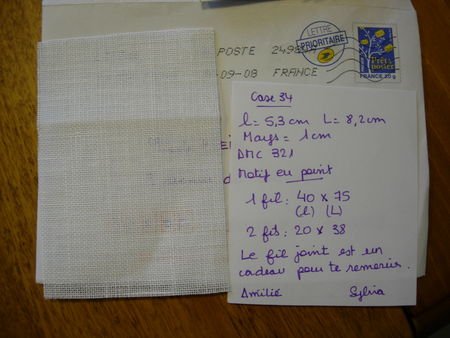 LETTRE
PRIORITAIRE
POSTE
-09-08 FRANCE
Prêt-à-poster
FRANCE 20g
Case 34
l = 5,3 cm L = 8,2 cm
Marges = 1 cm
DMC 321
Motif en point
1 fil : 40 x 75
(l) (L)
2 fils : 20 x 38
Le fil joint est un
cadeau pour te remercier.
Amitié Sylvia